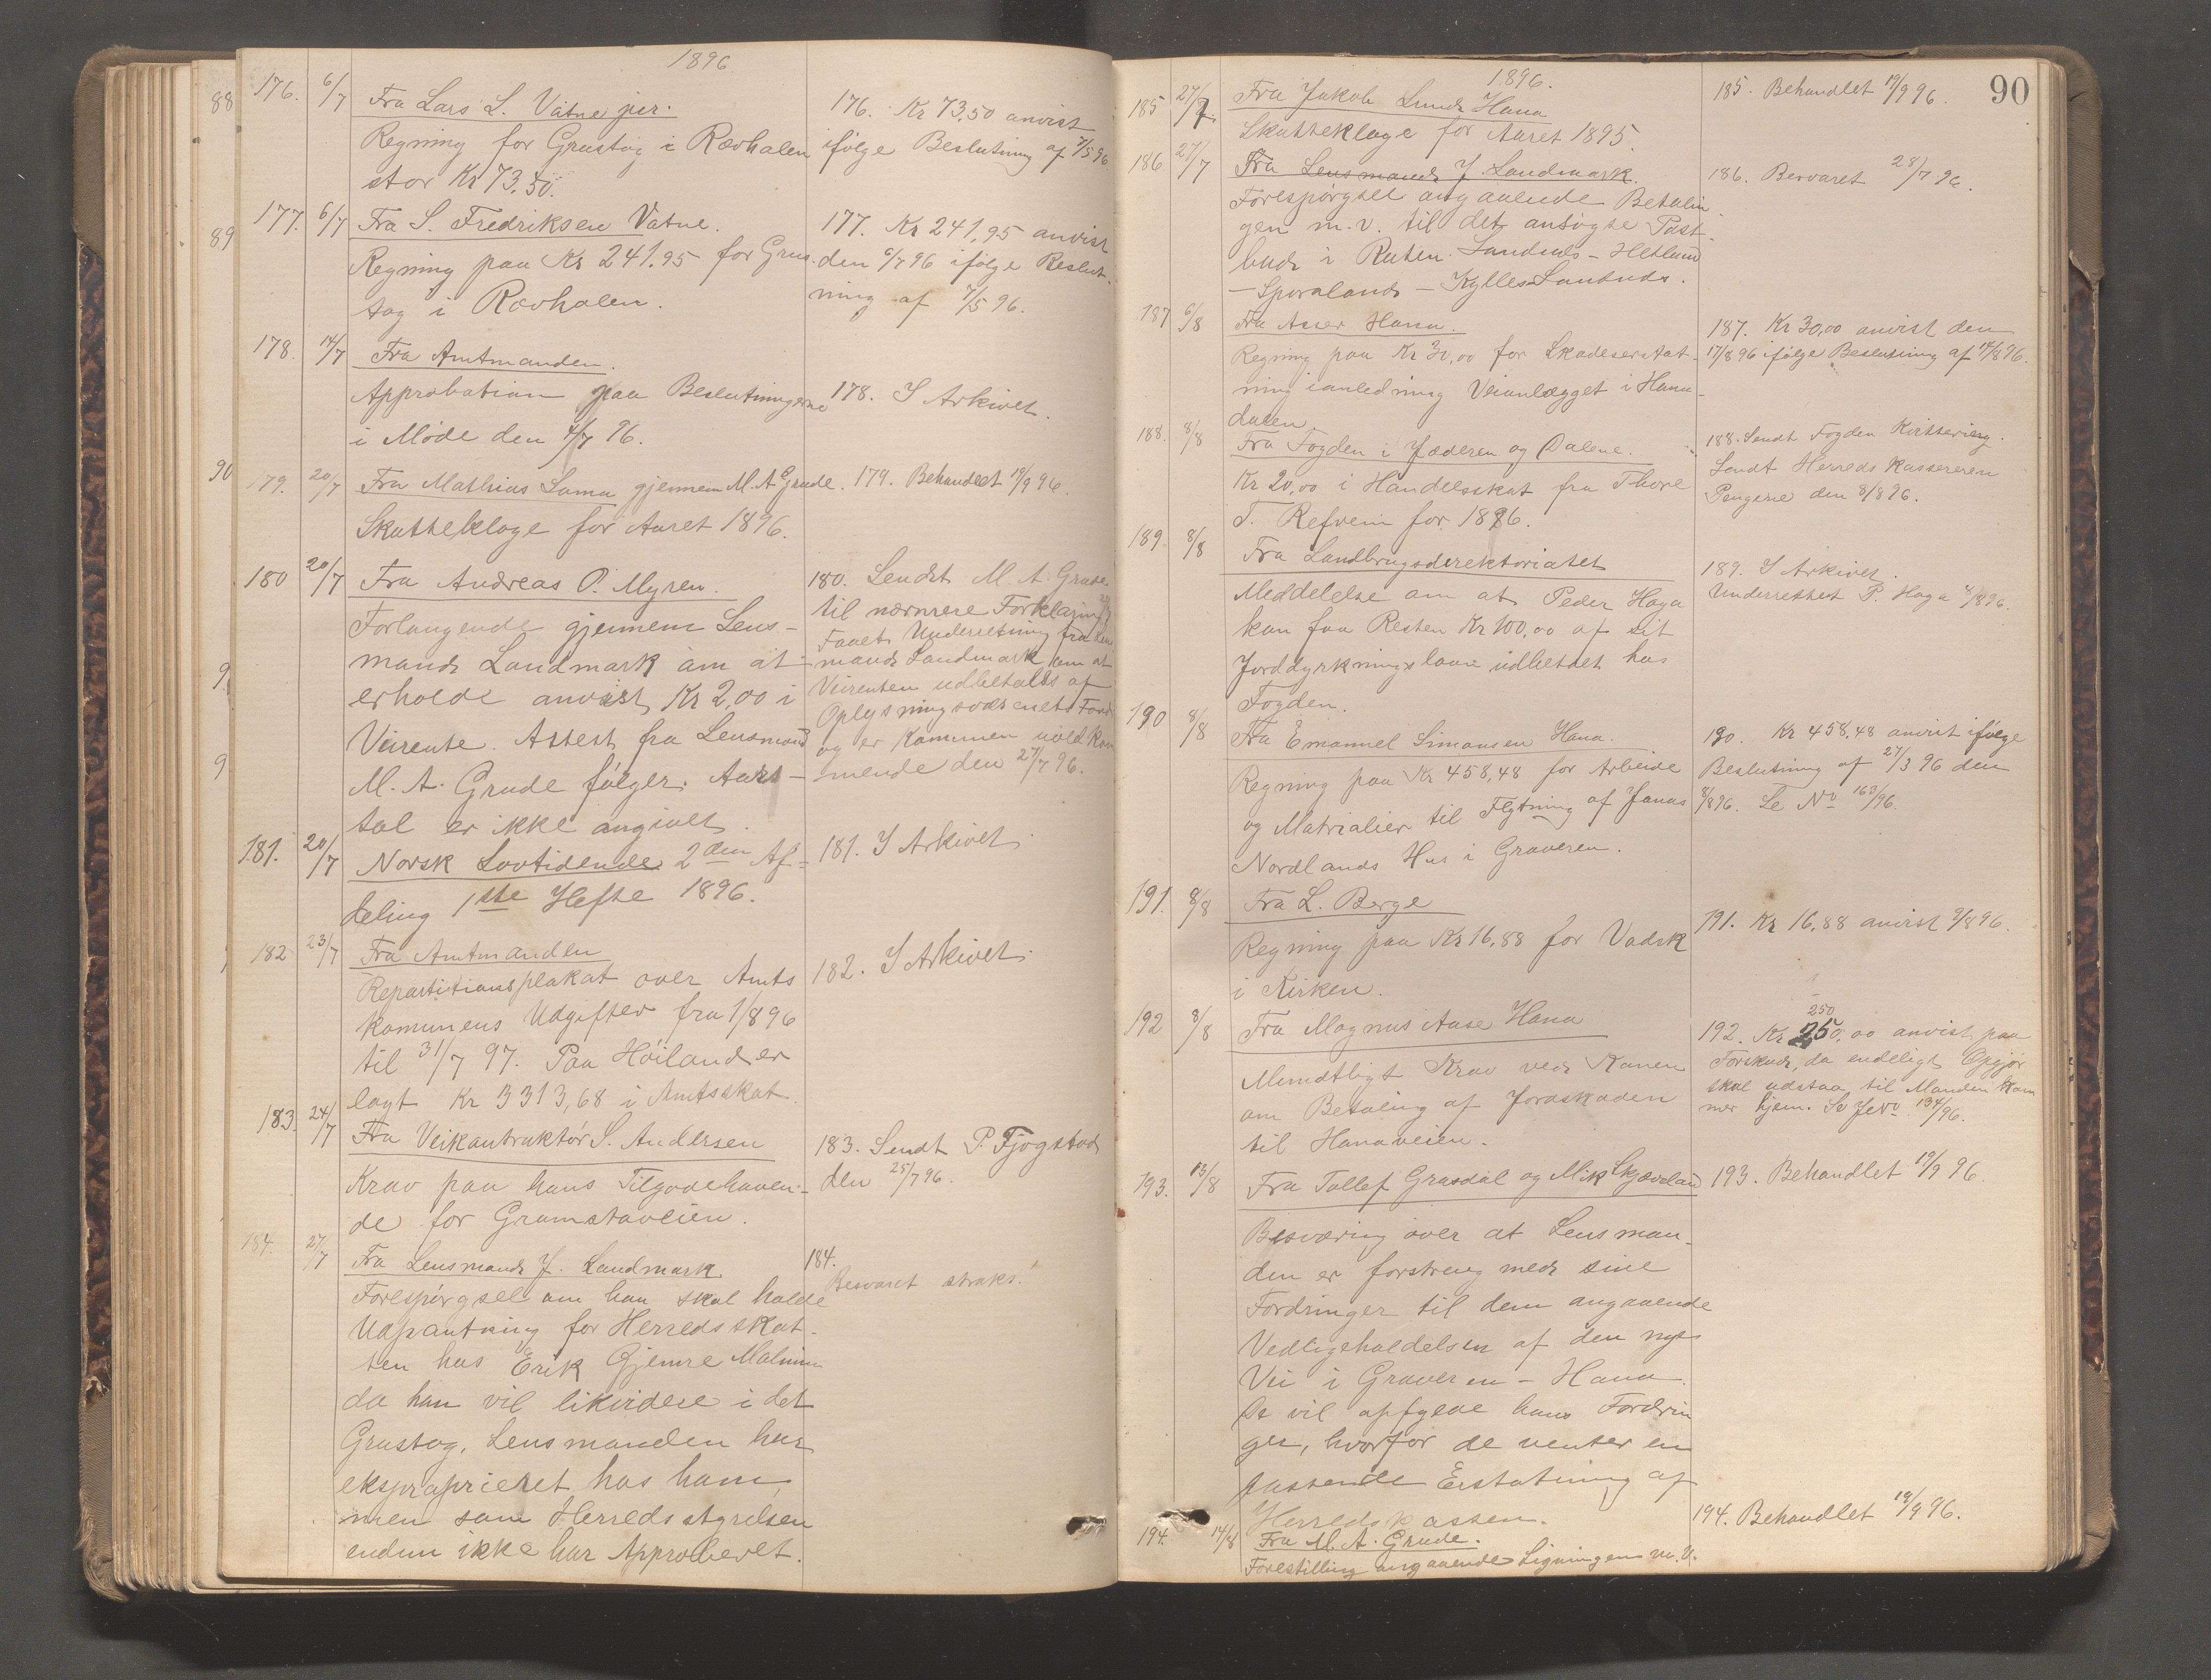 1896
176. 6/7 Fra Lars L. Vatne jur.
Regning for Grustag i Rævhalen
stor Kr 73,50.
176. Kr 73,50 anvist
ifølge Beslutning af 7/5 96
177. 6/7 Fra S. Fredriksen Vatne.
Regning paa Kr 241.95 for Grus-
tag i Rævhalen.
177. Kr 241,95 anvist
den 6/7 96 ifølge Beslut-
ning af 7/5 96.
178. 14/7 Fra Amtmanden.
Approbation paa Beslutningerne
i Møde den 4/7 96.
178. I Arkivet.
179. 20/7 Fra Mathias Lama gjennem M. A. Grude.
Skatteklage for Aaret 1896.
179. Behandlet 19/9 96.
180 20/7 Fra Andreas O. Myren.
Forlangende gjennem Lens-
mand Landmark om at
erholde anvist Kr 2,00 i
Veirente. Attest fra Lensmand
M. A. Grude følger. Aars-
tal er ikke angivet.
180. Sendt M. A. Grude
til nærmere Forklaring
Faaet Underretning fra Lens
mand Landmark om at
Veirenten udbetales af
Oplysningsvæsenets Fond
og er Kommunen uvedkom
mende den 27/7 96.
181. 20/7 Norsk Lovtidende 2den Af-
deling 1ste Hefte 1896.
181. I Arkivet.
182 23/7 Fra Amtmanden
Repartitionsplakat over Amts
kommunens Udgifter fra 1/8 96
til 31/7 97. Paa Høiland er
lagt Kr 3313,68 i Amtsskat.
182. I Arkivet.
183. 24/7 Fra Veikontruktør S. Andersen
Krav paa hans Tilgodehaven-
de for Gramstaveien.
183. Sendt P. Fjogstad
den 25/7 96.
184. 27/7 Fra Lensmand J. Landmark
Forespørgsel om han skal holde
Udpantning for Herredsskat-
ten hos Erik Gjemre Malmim
da han vil likvidere i det
Grustag, Lensmanden har
eksproprieret hos ham,
men som Herredsstyrelsen
endnu ikke har Approberet.
184.
Besvaret straks.
88
89
90
9
9
90
1896.
185 27/7 Fra Jakob Lunde Hana
Skatteklage for Aaret 1895.
185. Behandlet 19/9 96.
186 27/7 Fra Lensmand J. Landmark.
Forespørgsel angaaende Betalin
gen m.v. til det ansøgte Post-
bud i Ruten Sandnds - Hetland
- Sporaland - Kylles Sandnds.
186. Besvaret 28/7 96.
187 6/8 Fra Asser Hana.
Regning paa Kr 30,00 for Skadeserstat-
ning i anledning Veianlægget i Hana-
dalen.
187. Kr 30,00 anvist den
17/8 96 ifølge Beslutning af 14/8 96.
188. 8/8 Fra Fogden i Jæderen og Dalene.
Kr 20,00 i Handelsskat fra Thore
T. Refvem for 1896.
188. Sendt Fogden Kvittering.
Sendt Herredskassereren
Pengene den 8/8 96.
189. 8/8 Fra Landbrugsdirektoriatet
Meddelelse om at Peder Haga
kan faa Resten Kr 100,00 af sit
Jorddyrkningslaan udbetalt hos
Fogden.
189. I Arkivet.
Underrettet P. Haga 8/8 96.
190 8/8 Fra Emanuel Simonsen Hana.
Regning paa Kr 458,48 for Arbeide
og Matrialier til Flytning af Jonas
Nordlands Hus i Graveren.
190. Kr 458,48 anvist ifølge
Beslutning af 27/3 96 den
8/8 96. Se No 163/96.
191. 8/8 Fra L. Berge
Regning paa Kr 16,88 for Vadsk
i Kirken.
191. Kr 16,88 anvist 9/8 96.
192 8/8 Fra Magnus Aase Hana
Mundtligt Krav ved Konen
om Betaling af Jordskaden
til Hanaveien.
250
192. Kr 250,00 anvist paa
Forskud, da endeligt Opgjør
skal udstaa, til Manden kom
mer hjem. Se 134/96.
193. 13/8 Fra Tollef Grasdal og Mik Skjæveland
Besværing over at Lensman-
den er forstreng med sine
Fordringer til dem angaaende
Vedligeholdelsen af den nye
Vei i Graveren - Hana.
De vil opfylde hans Fordrin
ger, hvorfor de venter en
passende Erstatning af
Herredskassen.
193. Behandlet 19/9 96.
194. 14/8 Fra M. A. Grude.
Forestilling angaaende Ligningen m. V.
194. Behandlet 19/9 96.